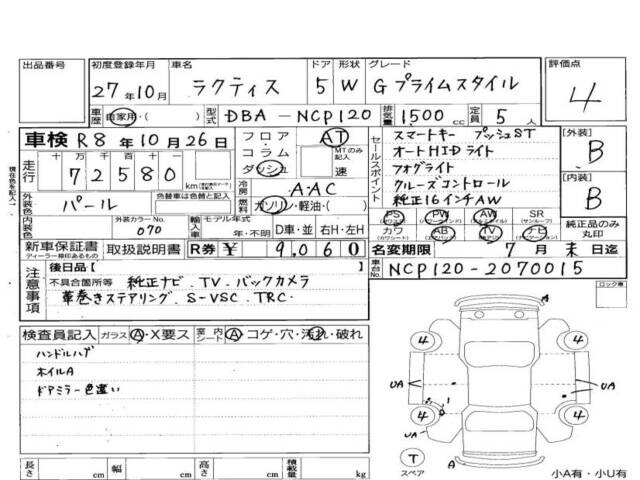 出品番号
初度登録年月 27年10月
車名 ラクティス
ドア 5
形状 W
グレード Gプライムスタイル
評価点 4
車歴 自家用・( )
型式 DBA-NCP120
排気量 1500cc
定員 5人
車検 R8年10月26日
走行 十万 万 千 百 十 一
72580 km
外装色 パール
色替車は色替と記入
内装色
外装カラーNo. 070
輸入車 モデル年式 年・不明
D車・並 右H・左H
フロア・コラム・ダッシュ
AT
MTのみ記入 速
冷房 A・AC
燃料 ガソリン・軽油・( )
セールスポイント
スマートキー プッシュST
オートHIDライト
フォグライト
クルーズコントロール
純正16インチAW
PS PW AW SR (サンルーフ)
カワ AB TV ナビ
[外装] B
[内装] B
純正品のみ丸印
新車保証書 取扱説明書 R券 ¥ 9,060
ディーラー捺印あるもの
名変期限 7月末日迄
車台No. NCP120-2070015
注意事項
後日品【 】
不具合箇所等 純正ナビ.TV.バックカメラ
革巻きステアリング.S-VSC.TRC.
ロック車
検査員記入 ガラス A・X要ス 室内シート A・コゲ・穴・汚れ・破れ
ハンドルハゲ
ホイルA
ドアミラー色違い
A
4
4
UA
UA
4
4
UA
A
T
スペア
小A有・小U有
長さ cm 幅 cm 高さ cm 積載量 kg